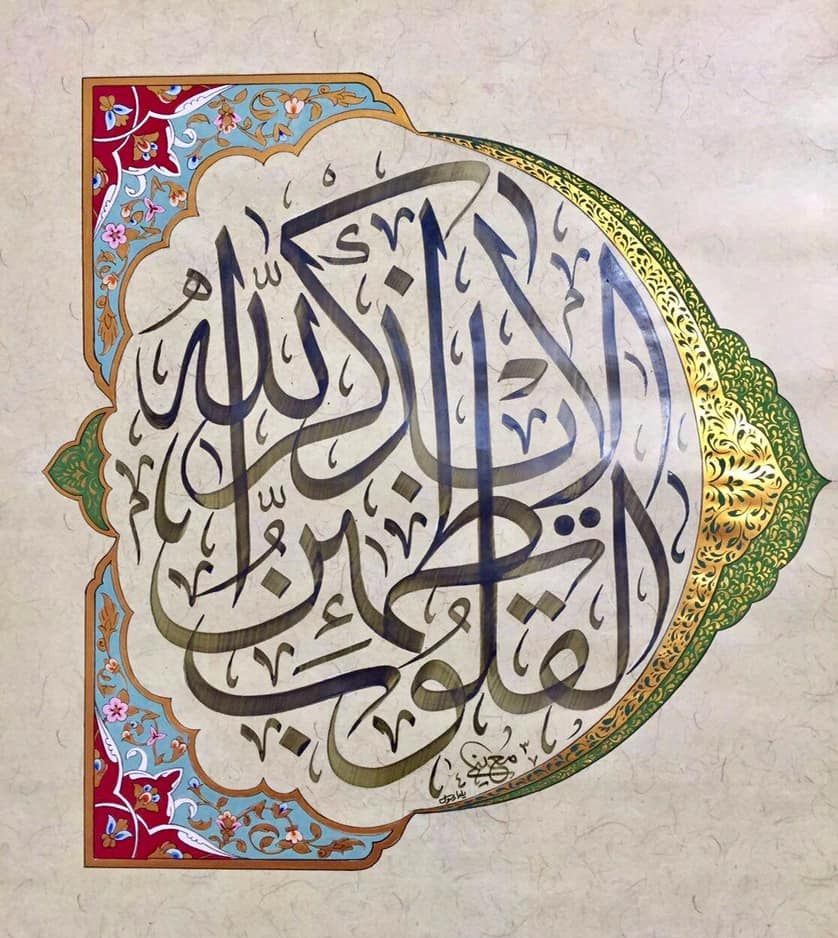 الا بذكر اللّٰهُ
تطمئِنُّ
القلوب
١٤٣٧